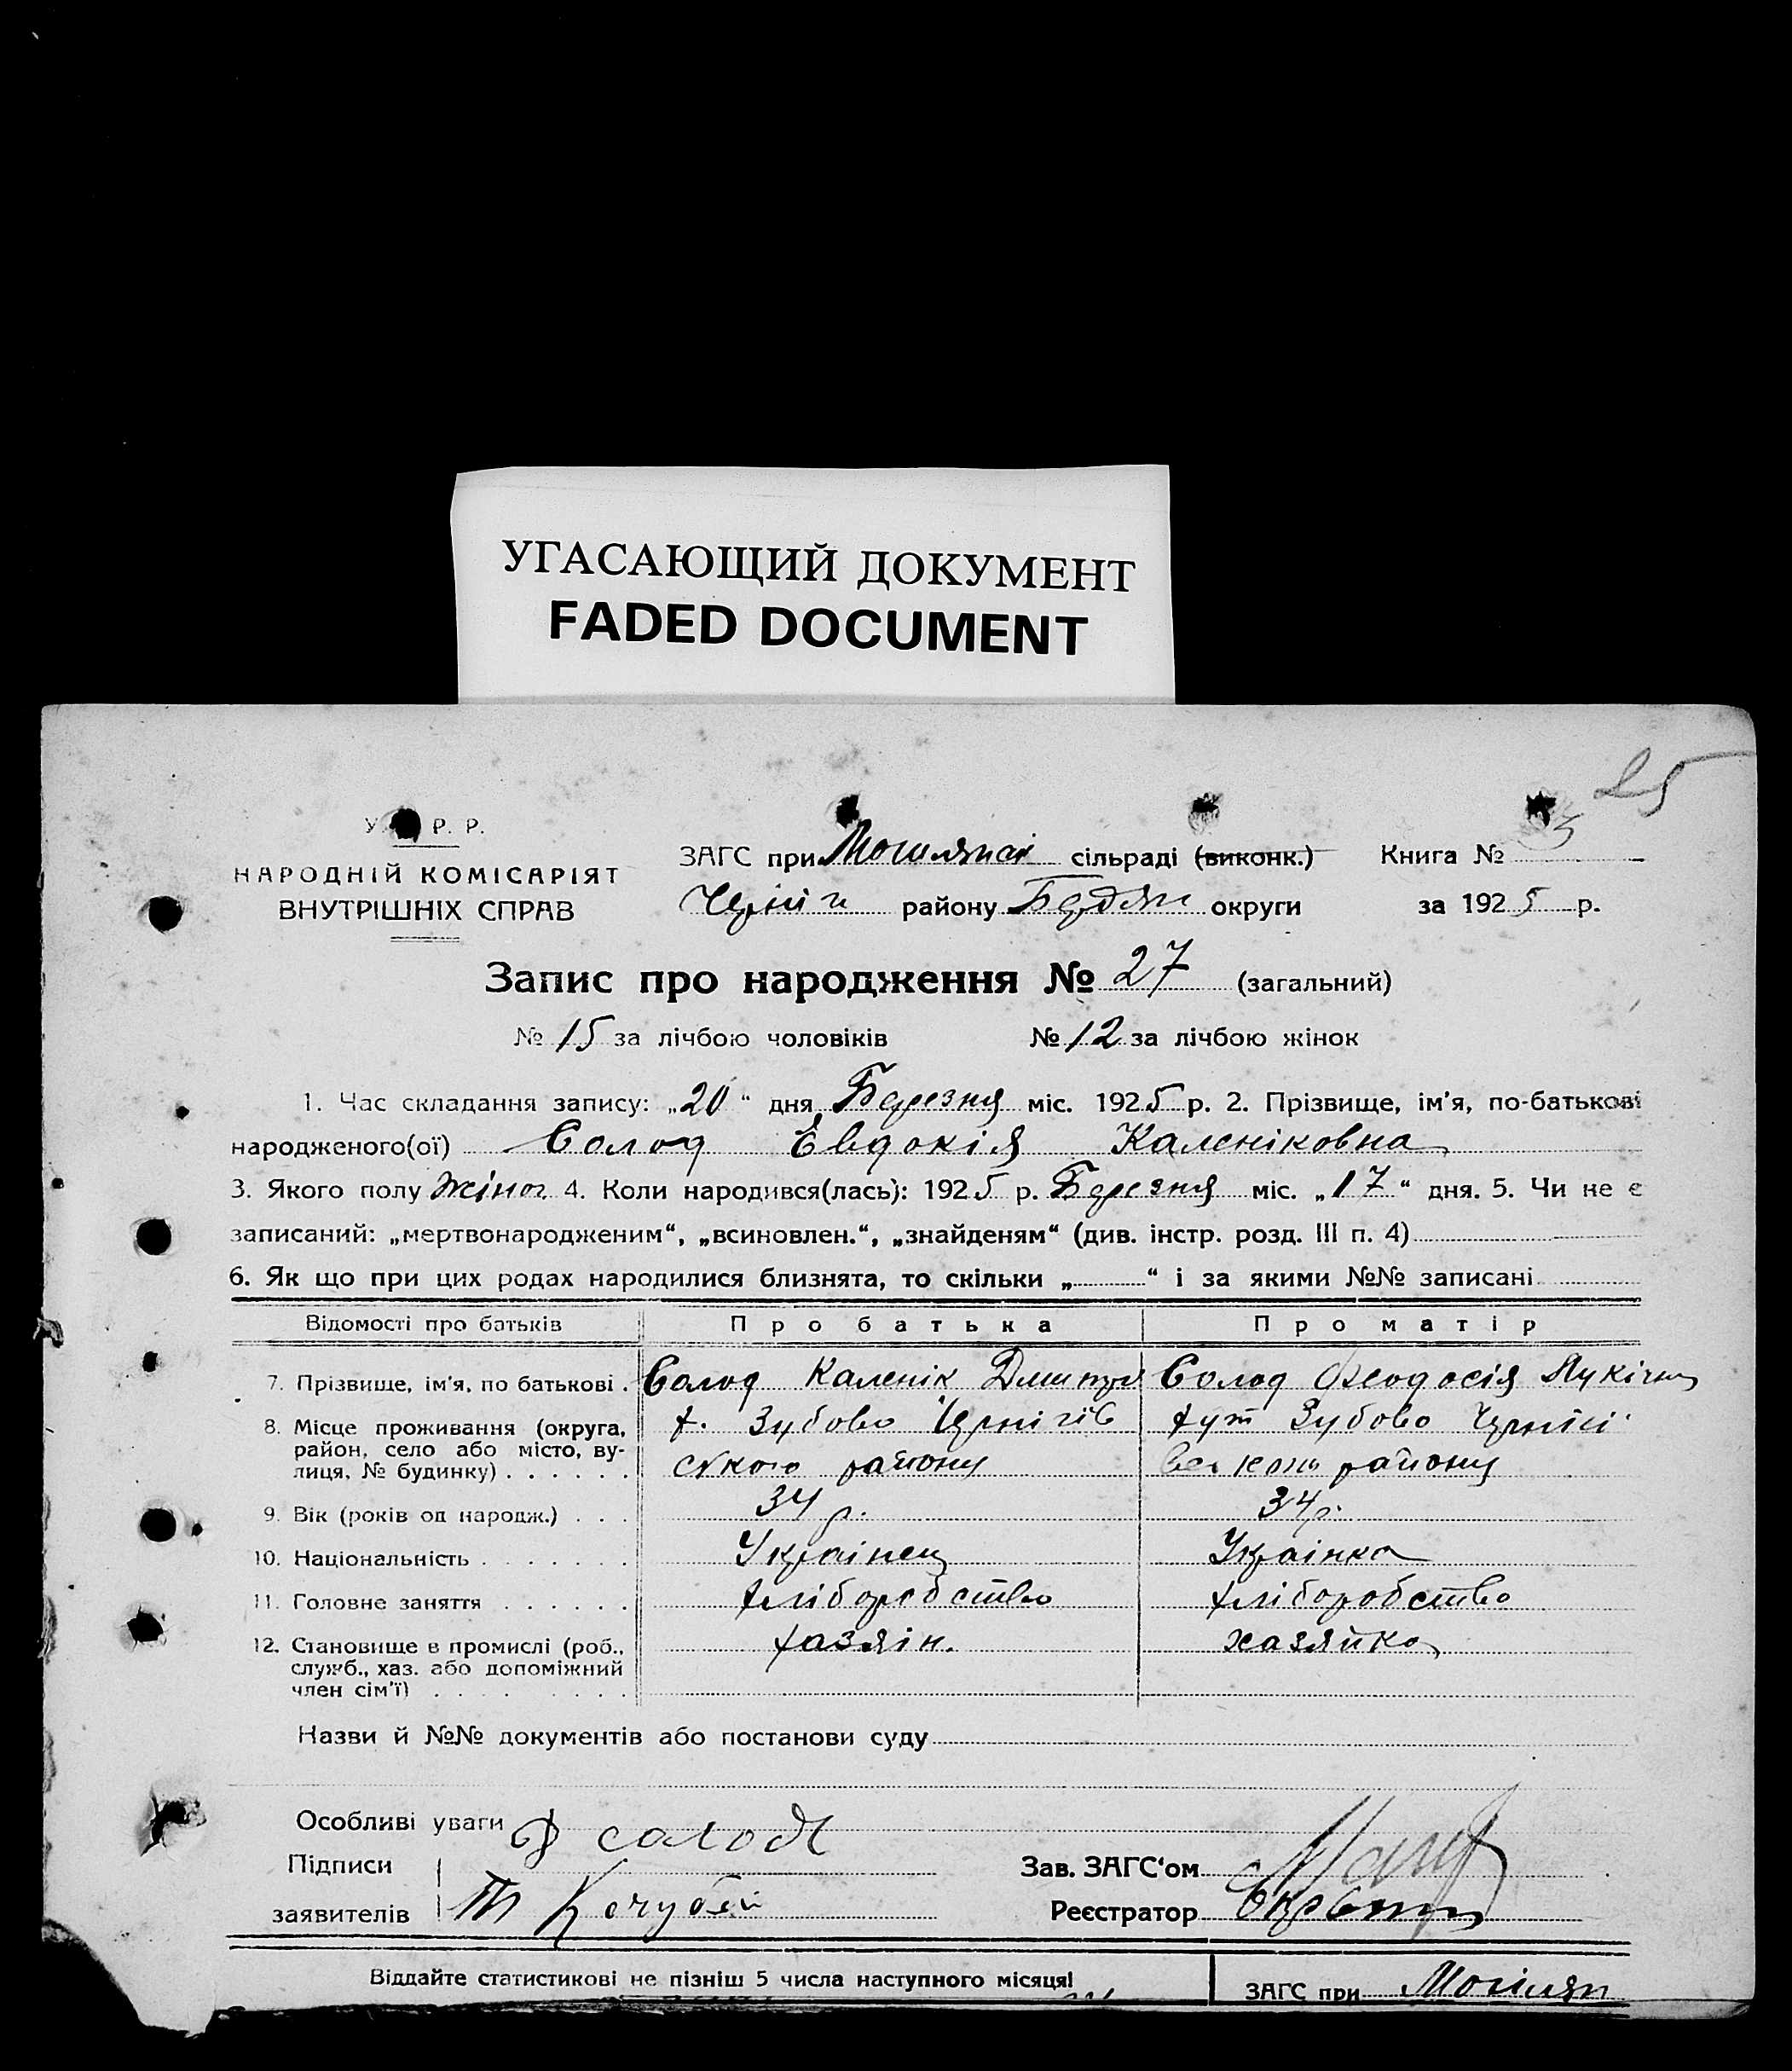 УГАСАЮЩИЙ ДОКУМЕНТ
FADED DOCUMENT
25
У. Р. Р.
НАРОДНІЙ КОМІСАРІЯТ
ВНУТРІШНІХ СПРАВ
ЗАГС при сільраді (виконк.) Книга № 3
Черніг району Бердян округи за 1925 р.
Запис про народження № 27 (загальний)
№ 15 за лічбою чоловіків № 12 за лічбою жінок
1. Час складання запису: „20“ дня Березня міс. 1925 р. 2. Прізвище, ім'я, по-батькові
народженого(ої) Солод Евдокія Каленіковна
3. Якого полу жіноч 4. Коли народився(лась): 1925 р. Березня міс. „17“ дня. 5. Чи не є
записаний: „мертвонародженим“, „всиновлен.“, „знайденям“ (див. інстр. розд. III п. 4)
6. Як що при цих родах народилися близнята, то скільки „ “ і за якими №№ записані
Відомості про батьків Про батька Про матір
7. Прізвище, ім'я, по батькові . Солод Каленік Дмитров Солод Феодосія Лукічна
8. Місце проживання (округа, район, село або місто, вулиця, № будинку) . . . . . . х. Зубово Чернігів хут Зубово Чернігі
ського району району
9. Вік (років од народж.) . . . 34 р. 34 р.
10. Національність . . . . . . . Українец Українка
11. Головне заняття . . . . . . хліборобство хліборобство
12. Становище в промислі (роб., служб., хаз. або допоміжний член сім'ї) . . . . . . . . . хазяін. хазяйка
Назви й №№ документів або постанови суду
Особливі уваги
Підписи солод Зав. ЗАГС'ом
заявителів Кочубей Реєстратор
Віддайте статистикові не пізніш 5 числа наступного місяця! ЗАГС при Могилян